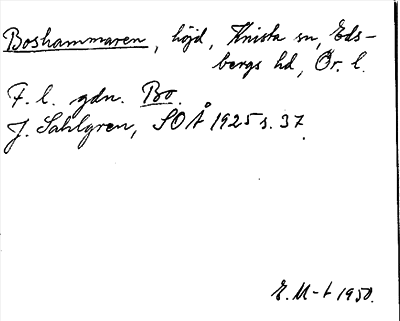 Boshammaren, höjd, Knista sn, Eds-
bergs hd, Ör. l.
F. l. gdn. Bo.
J. Sahlgren, SOÅ 1925 s. 37.
E. M-t 1950.